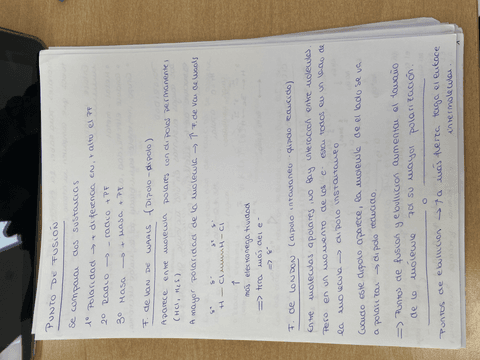 PUNTO DE FUSIÓN
Se comparan dos sustancias
1º Polaridad → + diferencia en, + alto el PF
2º Radio → - radio + PF
3º Masa → + Masa + PF
F. de VAN DE WAALS (Dipolo-dipolo)
Aparece entre molécula polares (con dipolos permanente)
(HCl, H2S)
A mayor polaridad de la molécula → ↑ F. de van de waals
δ+ δ- δ+ δ-
H - Cl H - Cl
↑
más electronegatividad
⇒ tira más del e-
⇒ δ-
F. de LONDON (dipolo instantáneo - dipolo inducido)
Entre moléculas apolares, no hay interacción entre moléculas
Pero en un momento de los e- están todos en un lado de
la molécula → dipolo instantáneo
Cuando este dipolo aparece, la molécula de al lado se va
a polarizar → dipolo inducido.
⇒ Puntos de fusión y ebullición aumentan el tamaño
de la molécula por su mayor polarización.
Puntos de ebullición → ↑ a más fuerte tenga el enlace
intermolecular.